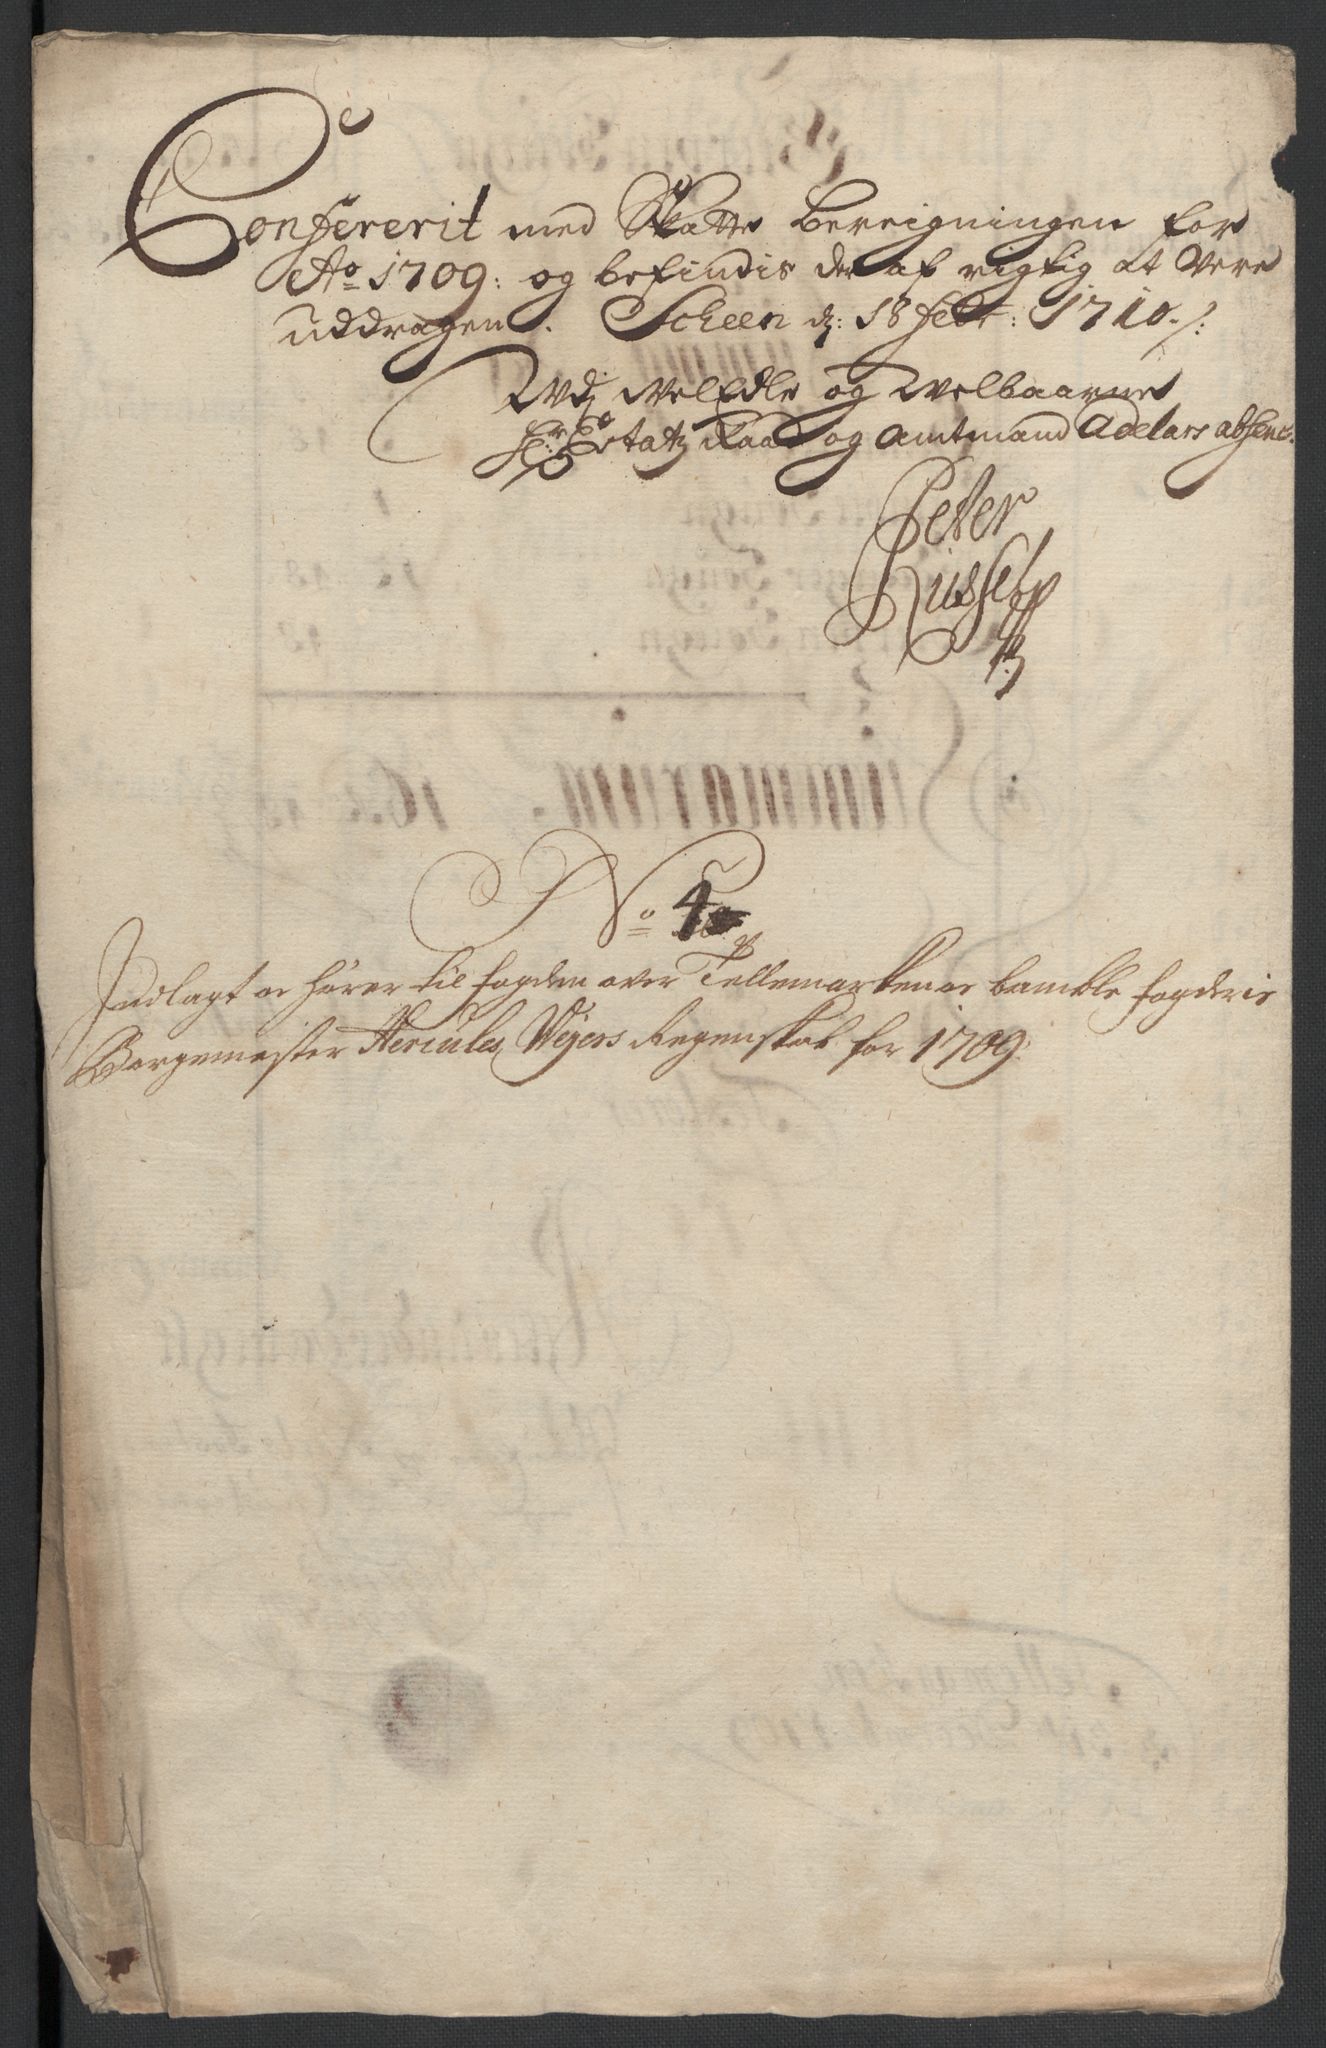 Confererit med Skatte Bereigningen for
Ao 1709: og befindis der af rigtig at Vere
uddragen. Scheen d: 18 febr: 1710./:
Udj Velædle og Welbaarne
Hr: Etatz Raad og Amtmand Adelars absence.
Peter
Riussel
No 4
Indlagt oc hører til fogden over Tellemarken oc bamble fogderie
Borgemester Hercules Weyers Regenskab for 1709: